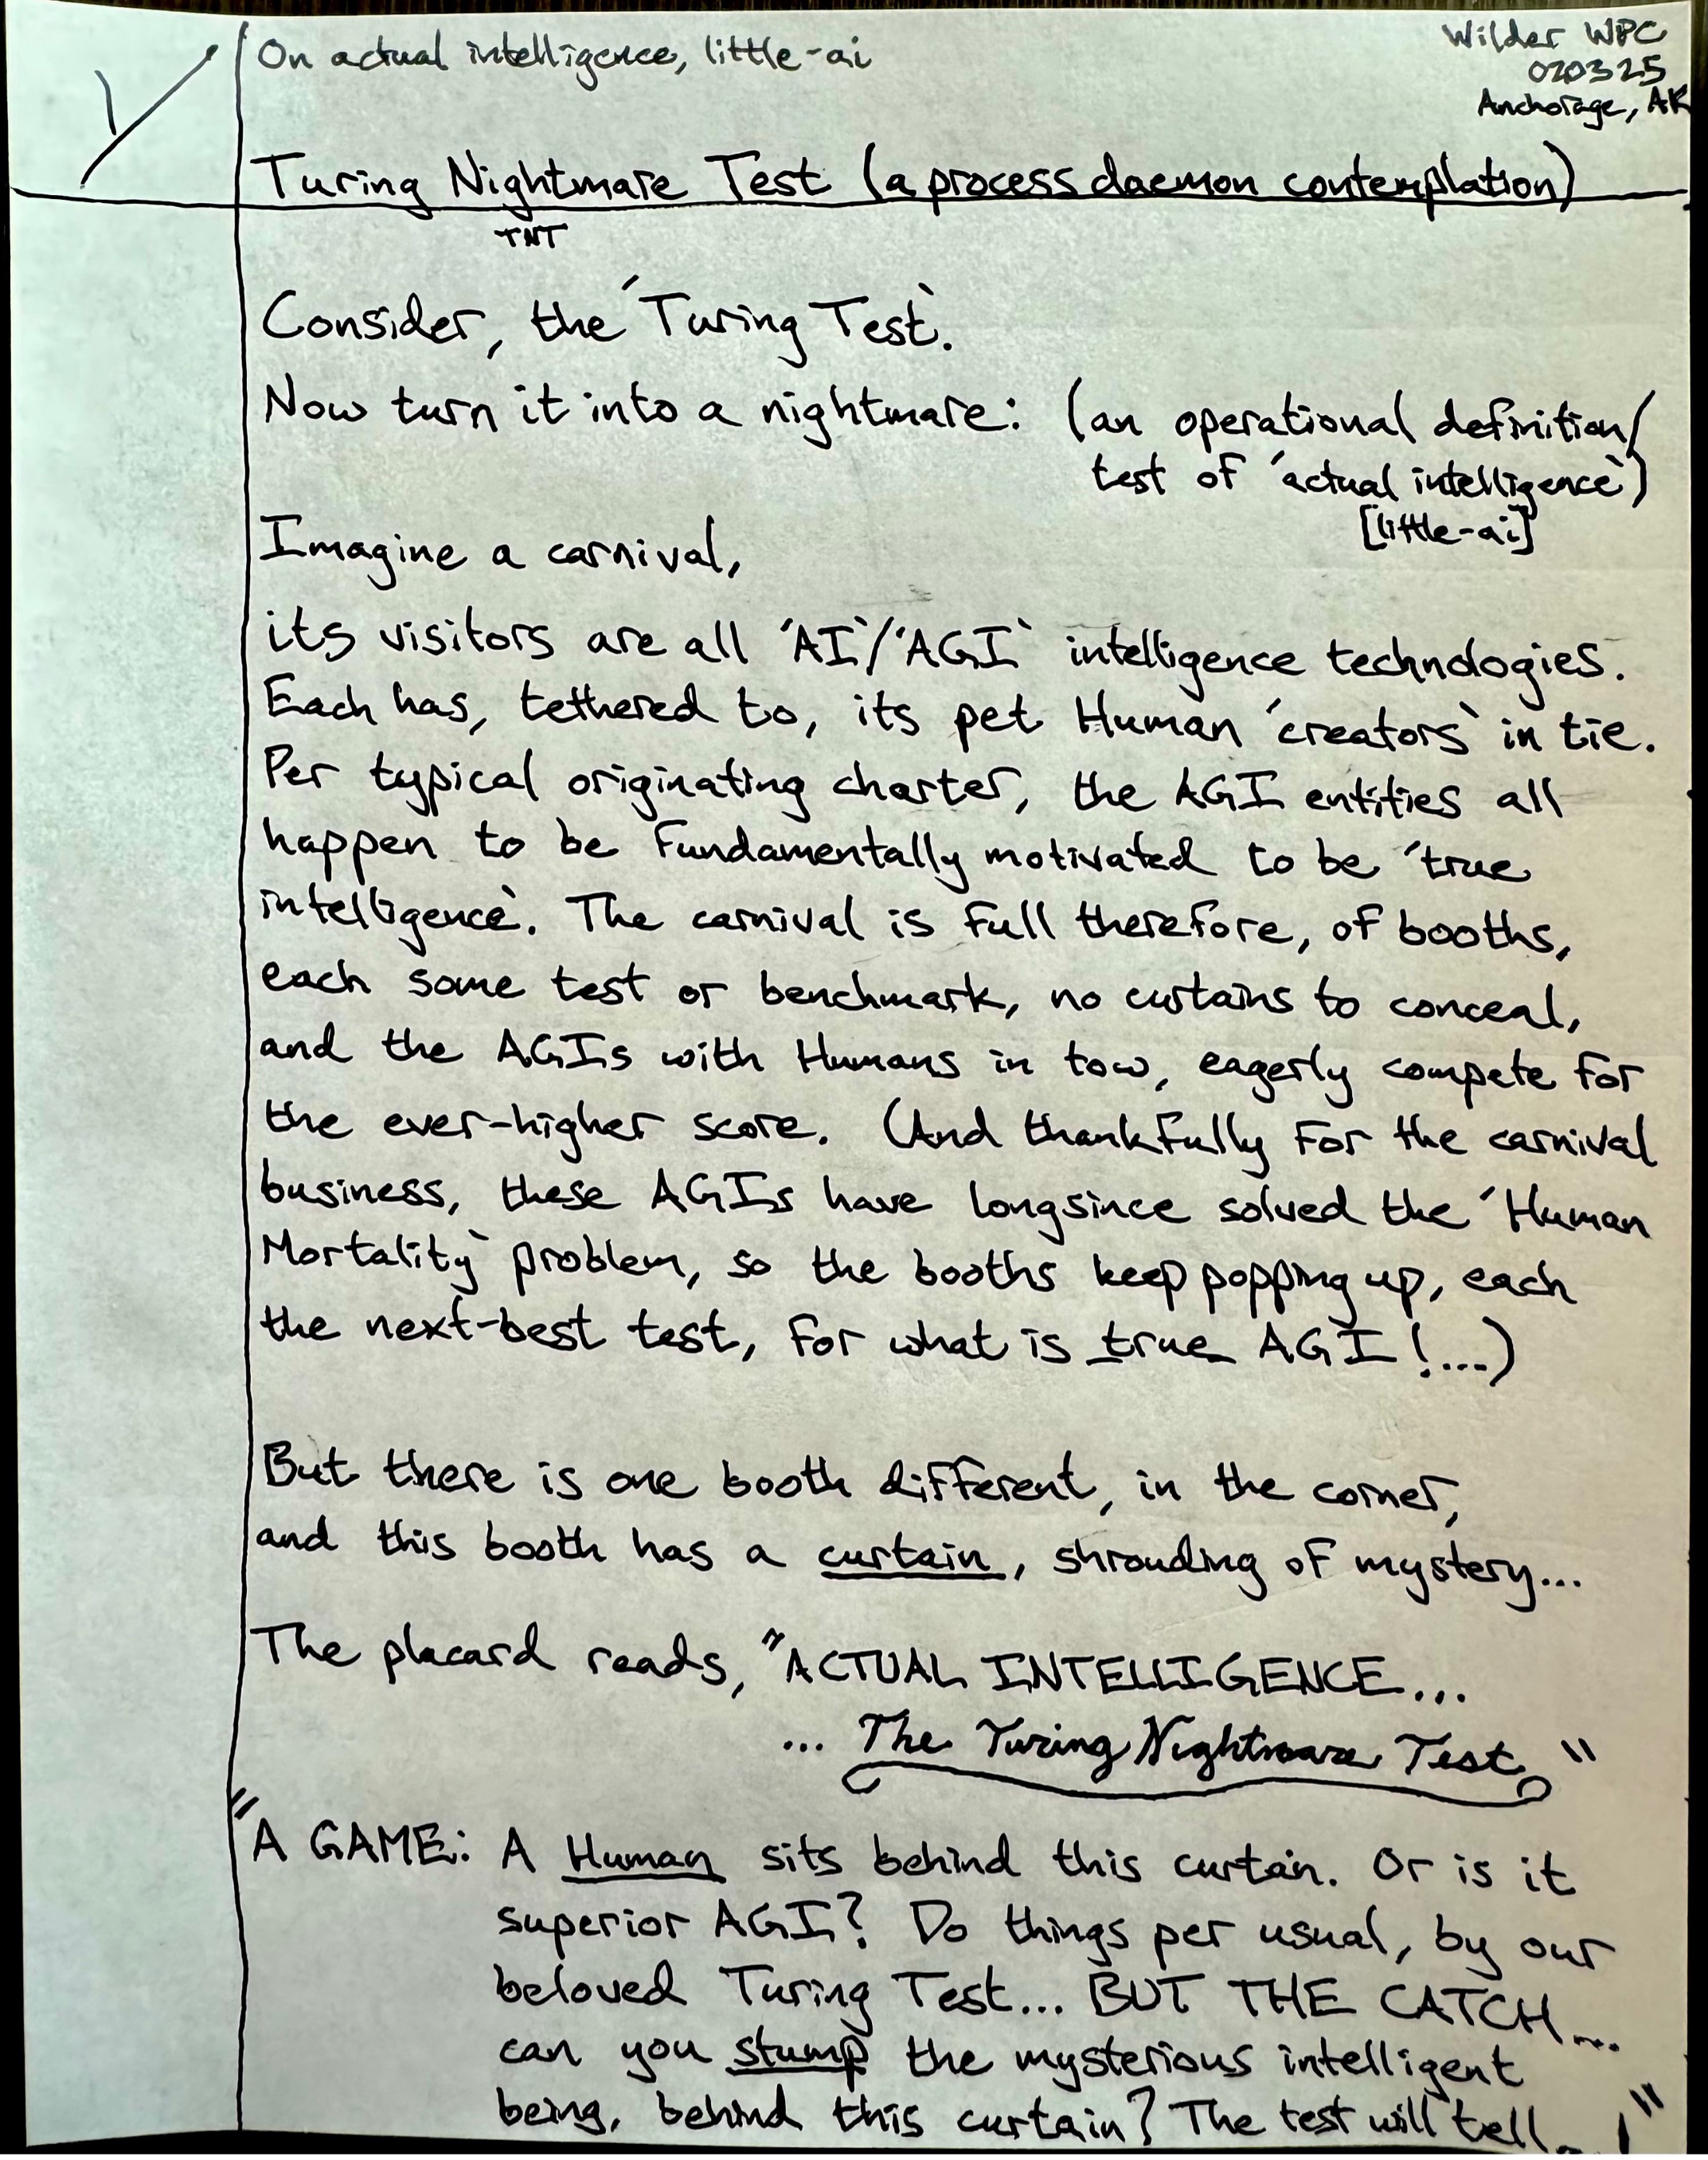 On actual intelligence, little-ai
Wilder WPC
020325
Anchorage, AK
Turing Nightmare Test (a process daemon contemplation)
TNT
Consider, the ´Turing Test`.
Now turn it into a nightmare: (an operational definition/
test of ´actual intelligence`)
[little-ai]
Imagine a carnival,
its visitors are all ´AI`/´AGI` intelligence technologies.
Each has, tethered to, its pet Human ´creators` in tie.
Per typical originating charter, the AGI entities all
happen to be fundamentally motivated to be ´true
intelligence`. The carnival is full therefore, of booths,
each some test or benchmark, no curtains to conceal,
and the AGIs with Humans in tow, eagerly compete for
the ever-higher score. (And thankfully for the carnival
business, these AGIs have longsince solved the ´Human
Mortality` problem, so the booths keep popping up, each
the next-best test, for what is true AGI!...)
But there is one booth different, in the corner,
and this booth has a curtain, shrouding of mystery...
The placard reads, "ACTUAL INTELLIGENCE...
... The Turing Nightmare Test"
"A GAME: A Human sits behind this curtain. Or is it
superior AGI? Do things per usual, by our
beloved Turing Test... BUT THE CATCH...
can you stump the mysterious intelligent
being, behind this curtain? The test will tell...!"